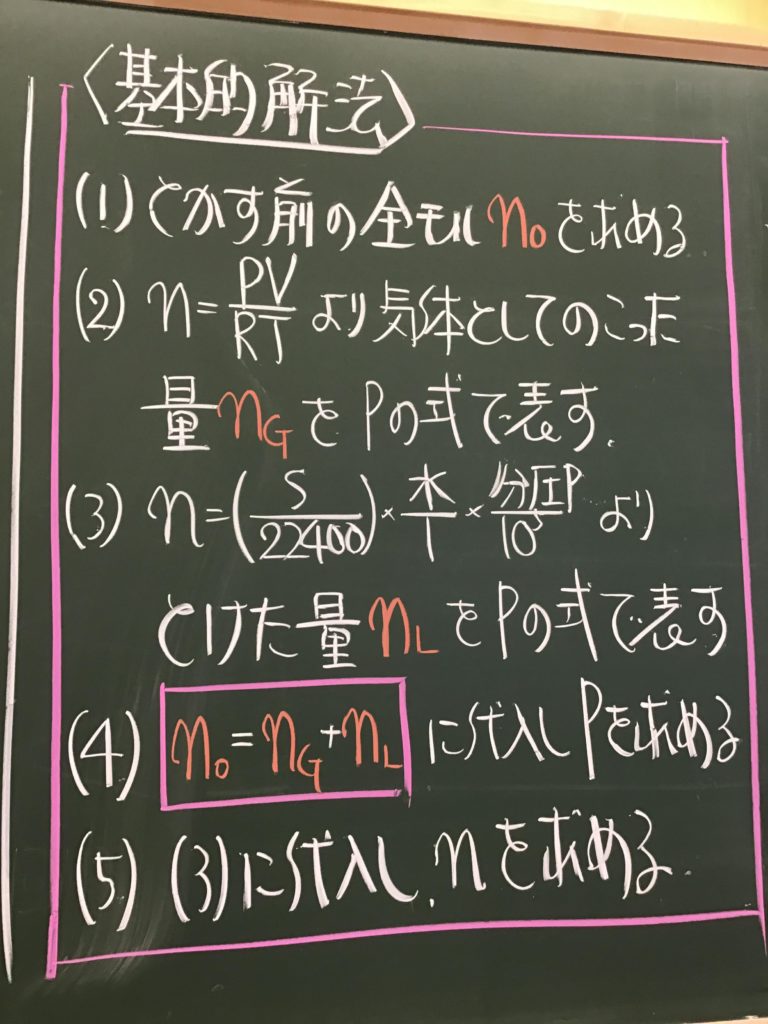 〈基本的解法〉
(1) とかす前の全モル n₀ を求める
(2) n = PV/RT より気体としてのこった
量 n_G を Pの式で表す.
(3) n = (S/22400) × 水/1 × 分圧P/10⁵ より
とけた量 n_L を Pの式で表す
(4) n₀ = n_G + n_L に代入し Pを求める
(5) (3)に代入し, n を求める.